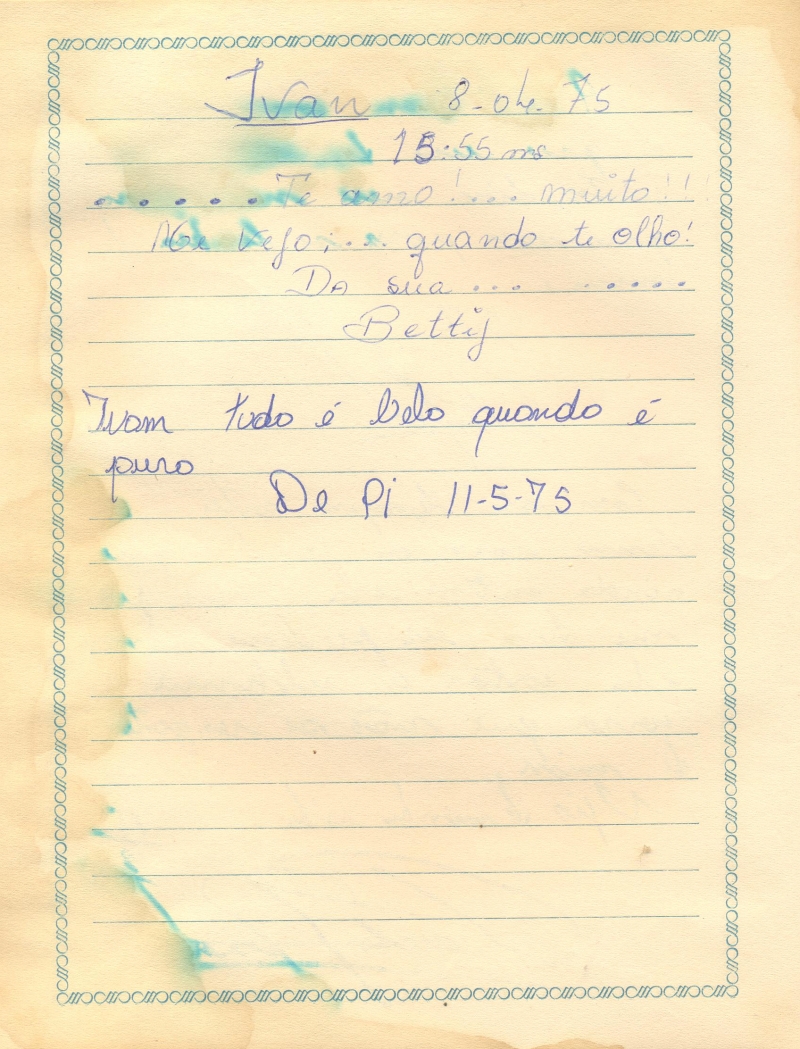 Ivan 8-04-75
15:55 ms
..... Te amo!... muito!!
Me vejo;... quando te olho!
Da sua... .....
Betty
Ivam tudo é belo quando é
puro
De Pi 11-5-75